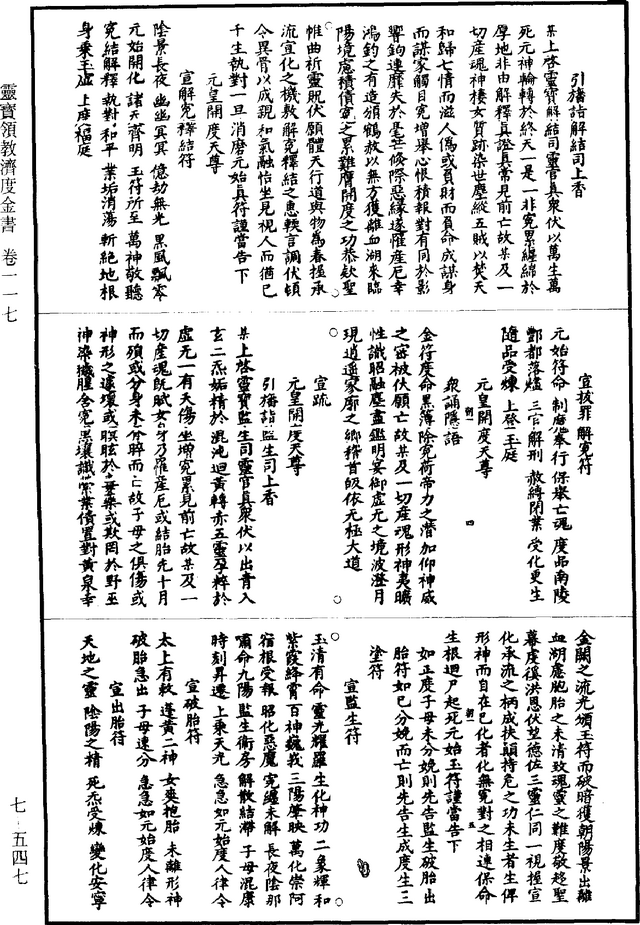 引旛詣解結司上香
某上啓靈寶解結司靈官真衆伏以萬生萬
死元神輪轉於終天一是一非寃累纏綿於
厚地非由解釋真證真常見前亡故某及一
切產魂神棲女質跡染世塵縱五賊以焚天
和歸七情而滋人僞或負財而負命成謀身
而謀家觸目寃增舉心恨積報對有同於影
響鉤連靡失於毫芒倐際惡緣遂罹產厄幸
鴻鈞之有造頒鶴赦以無方獲離血湖來臨
陽境慮積債寃之累難膺開度之功恭欽聖
帷曲祈靈貺伏願體天行道與物為春握承
流宣化之機敷解寃釋結之惠輭言調伏頓
令異骨以成親和氣融怡坐見視人而猶已
千生執對一旦消磨元始真符謹當告下
元皇開度天尊
宣解寃釋結符
陰景長夜 幽幽冥冥 億劫無光 黑風飄零
元始開化 諸天齊明 玉符所至 萬神敬聽
寃結解釋 執對和平 業垢消蕩 斬絕地根
身乘玉虛 上度福庭
宣拔罪解寃符
元始符命 制魔奉行 保舉亡魂 度品南陵
酆都落燼 三官解刑 赦縛閉業 受化更生
隨品受煉 上登王庭
元皇開度天尊
衆誦隱語
金符度命黑簿除寃荷帝力之潛加仰神威
之密祓伏願亡故某及一切產魂形神夷曠
性識昭融塵盡鑑明宴御虛元之境波澄月
現逍遙家廓之鄉稽首皈依无極大道
宣疏
元皇開度天尊
引旛詣監生司上香
某上啓靈寶監生司靈官真衆伏以出青入
玄二炁妬精於混沌迴黃轉赤五靈孕粹於
虛无一有夭傷坐增寃累見前亡故某及一
切產魂既賦女身乃罹產厄或結胎先十月
而殞或分身未分娩而亡故子母之俱傷或
神形之遽壞或瞑眩於藥或欺罔於野巫
神染穢腥含寃黑壤識業債置對黃泉幸
金闕之流光頒玉符而破暗獲朝陽景出離
血湖慮胞胎之未清致魂靈之難度敬趍聖
幕虔徯洪恩伏望德佐三靈仁同一視握宣
化承流之柄成扶顛持危之功未生者生俾
形神而自在已化者化無寃對之相連保命
生根迴尸起死元始玉符謹當告下
如正度子母未分娩則先告監生破胎出
胎符如已分娩而亡則先告生成度生三
塗符
宣監生符
玉清有命 靈光耀羅 生化神功 二象輝和
紫霞絳霄 百神巍峩 三陽肇映 萬化崇阿
宿根受報 昭化惡魔 寃纏未解 長夜陰那
嘯命九陽 監生衛房 解散結滯 子母混康
時刻昇遷 上乘天光 急急如元始度人律令
宣破胎符
太上有敕 蓬黃二神 女奭抱胎 未離形神
破胎急出 子母速分 急急如元始度人律令
宣出胎符
天地之靈 陰陽之精 死炁受煉 變化安寧
靈寶領教濟度金書 卷一一七
七·五四七